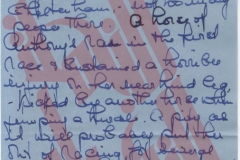 people there. A horse of
Anthony's raced in the third
race & sustained a horrible
injury in her near hind leg
- kicked by another horse when
jumping a hurdle. A pity as
it will probably put her
out of racing for several